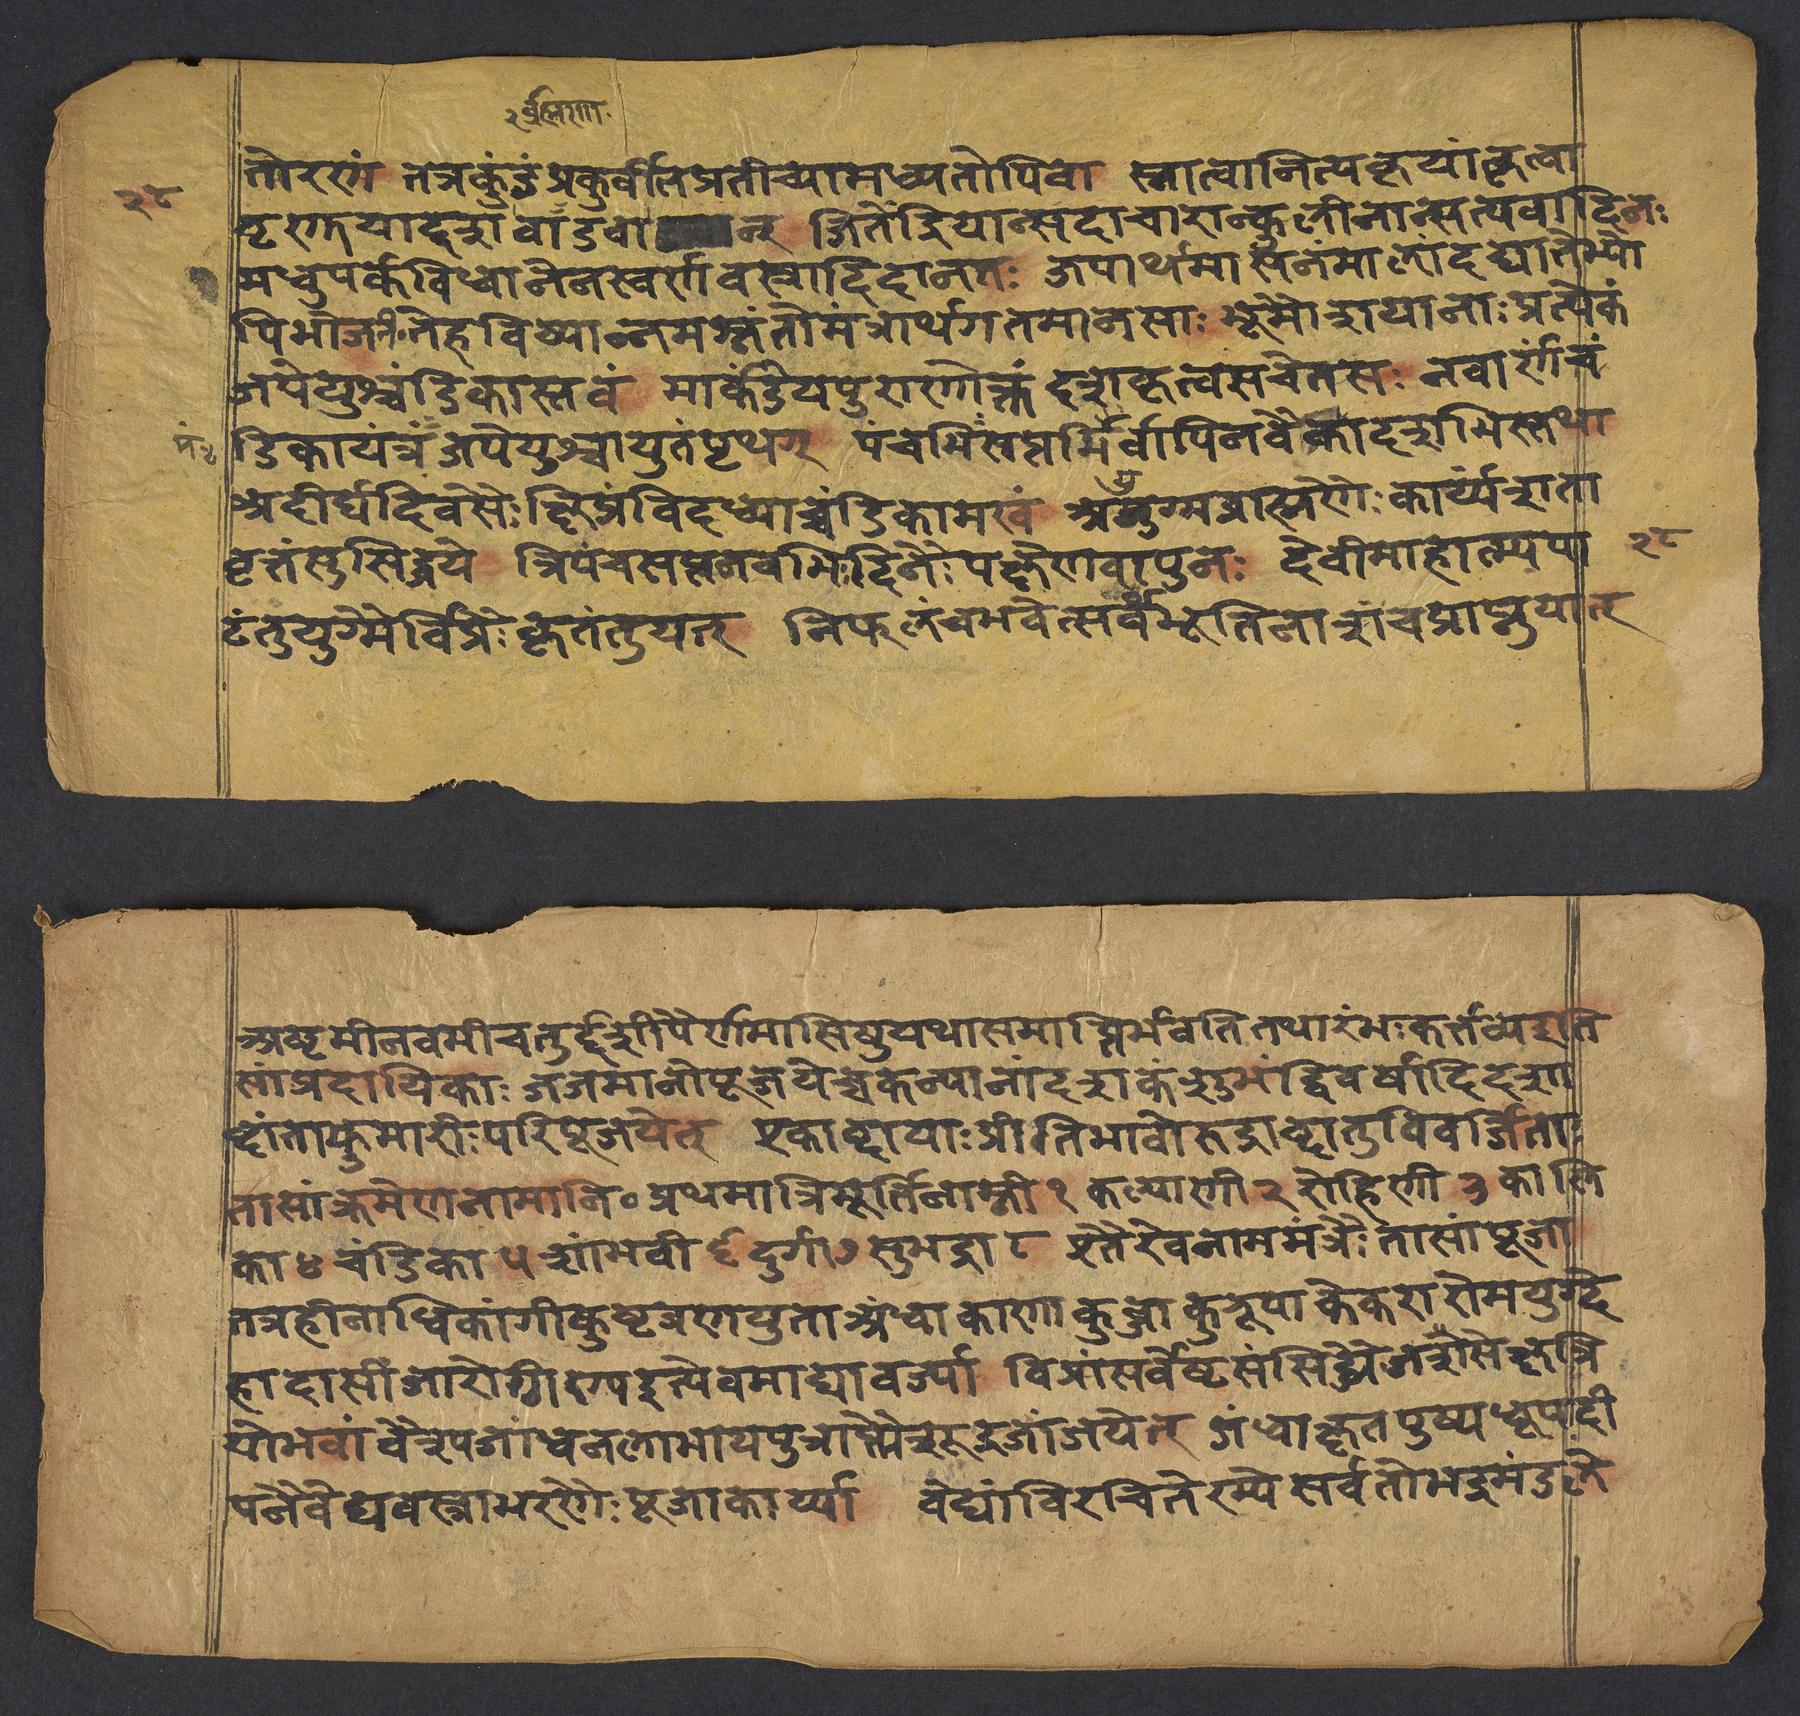 २र्ब्राह्मणा
तोरणं तत्रकुंडंप्रकुर्वीतिप्रतीच्यामध्यतोपिवा स्नात्वानित्यकृयांत्कृत्वा
२८
वृणुयाद्दशवाडवान् जितेंद्रियान्सदाचारान्कुलीनान्सत्यवादिनः
मधुपर्कविधानेनस्वर्णवस्त्रादिदानतः जपार्थमासनंमालांदद्यातेभ्यो
पिभोजनंतेहविष्यान्नमश्नंतोमंत्रार्थगतमानसाः भूमौशयानाःप्रत्येकं
जपेयुश्चंडिकास्तवं मार्कंडेयपुराणोक्तं दशकृत्वसचेतसः नवार्णंचं
डिकायंत्रंजपेयुश्चायुतंपृथग् पंचभिःसप्तभिर्वापिनवैकादशभिस्तथा
अदीर्घदिवसैःक्षिप्रंविदध्याच्चंडिकामखं अयुग्मब्राह्मणैः कार्य्यंशता
वृत्तंसुसिद्धये त्रिपंचसप्तनवभिःदिनैःपक्षेणवापुनः देवीमाहात्म्यपा
२८
ठंतुयुग्मैर्विप्रैःकृतंतुयत् निष्फलंचभवेत्सर्वंभूतिनाशंचप्राप्नुयात्
अष्टमीनवमीचतुर्द्दशीपौर्णमासिषुयथासमाप्तिर्भवतितथारंभःकर्त्तव्यइति
सांप्रदायिकाः जजमानोपूजयेच्चकन्यानांदशकंशुभंद्विवर्षादिदशा
ब्दांताकुमारीःपरिपूजयेत् एकाब्दायाःप्रीतिभावोरुद्राब्दातुविवर्जिताः
तासांक्रमेणनामानि॰प्रथमात्रिमूर्तिनाम्नी १ कल्याणी २ रोहिणी ३ कालि
का ४ चंडिका ५ शांभवी ६ दुर्गा ७ सुभद्रा ८ एतैरेवनाममंत्रैःतासांपूजा
तत्रहीनाधिकांगीकुष्टव्रणयुताअंधाकाणाकुब्जाकुरूपाकेकरारोमयुग्दे
हादासींजारोगीणइत्येवमाद्यावर्ज्या विप्रांसर्वेष्टसंसिद्ध्यैजशसेक्षत्रि
योभवांवैश्यजांधनलाभायपुत्राप्त्यैशूद्रजांजयेत् गंधाक्षतपुष्पधूपदी
पनैवेद्यवस्त्राभरणैः पूजाकार्य्या वेद्यांविरचितेरम्येसर्वतोभद्रमंडले